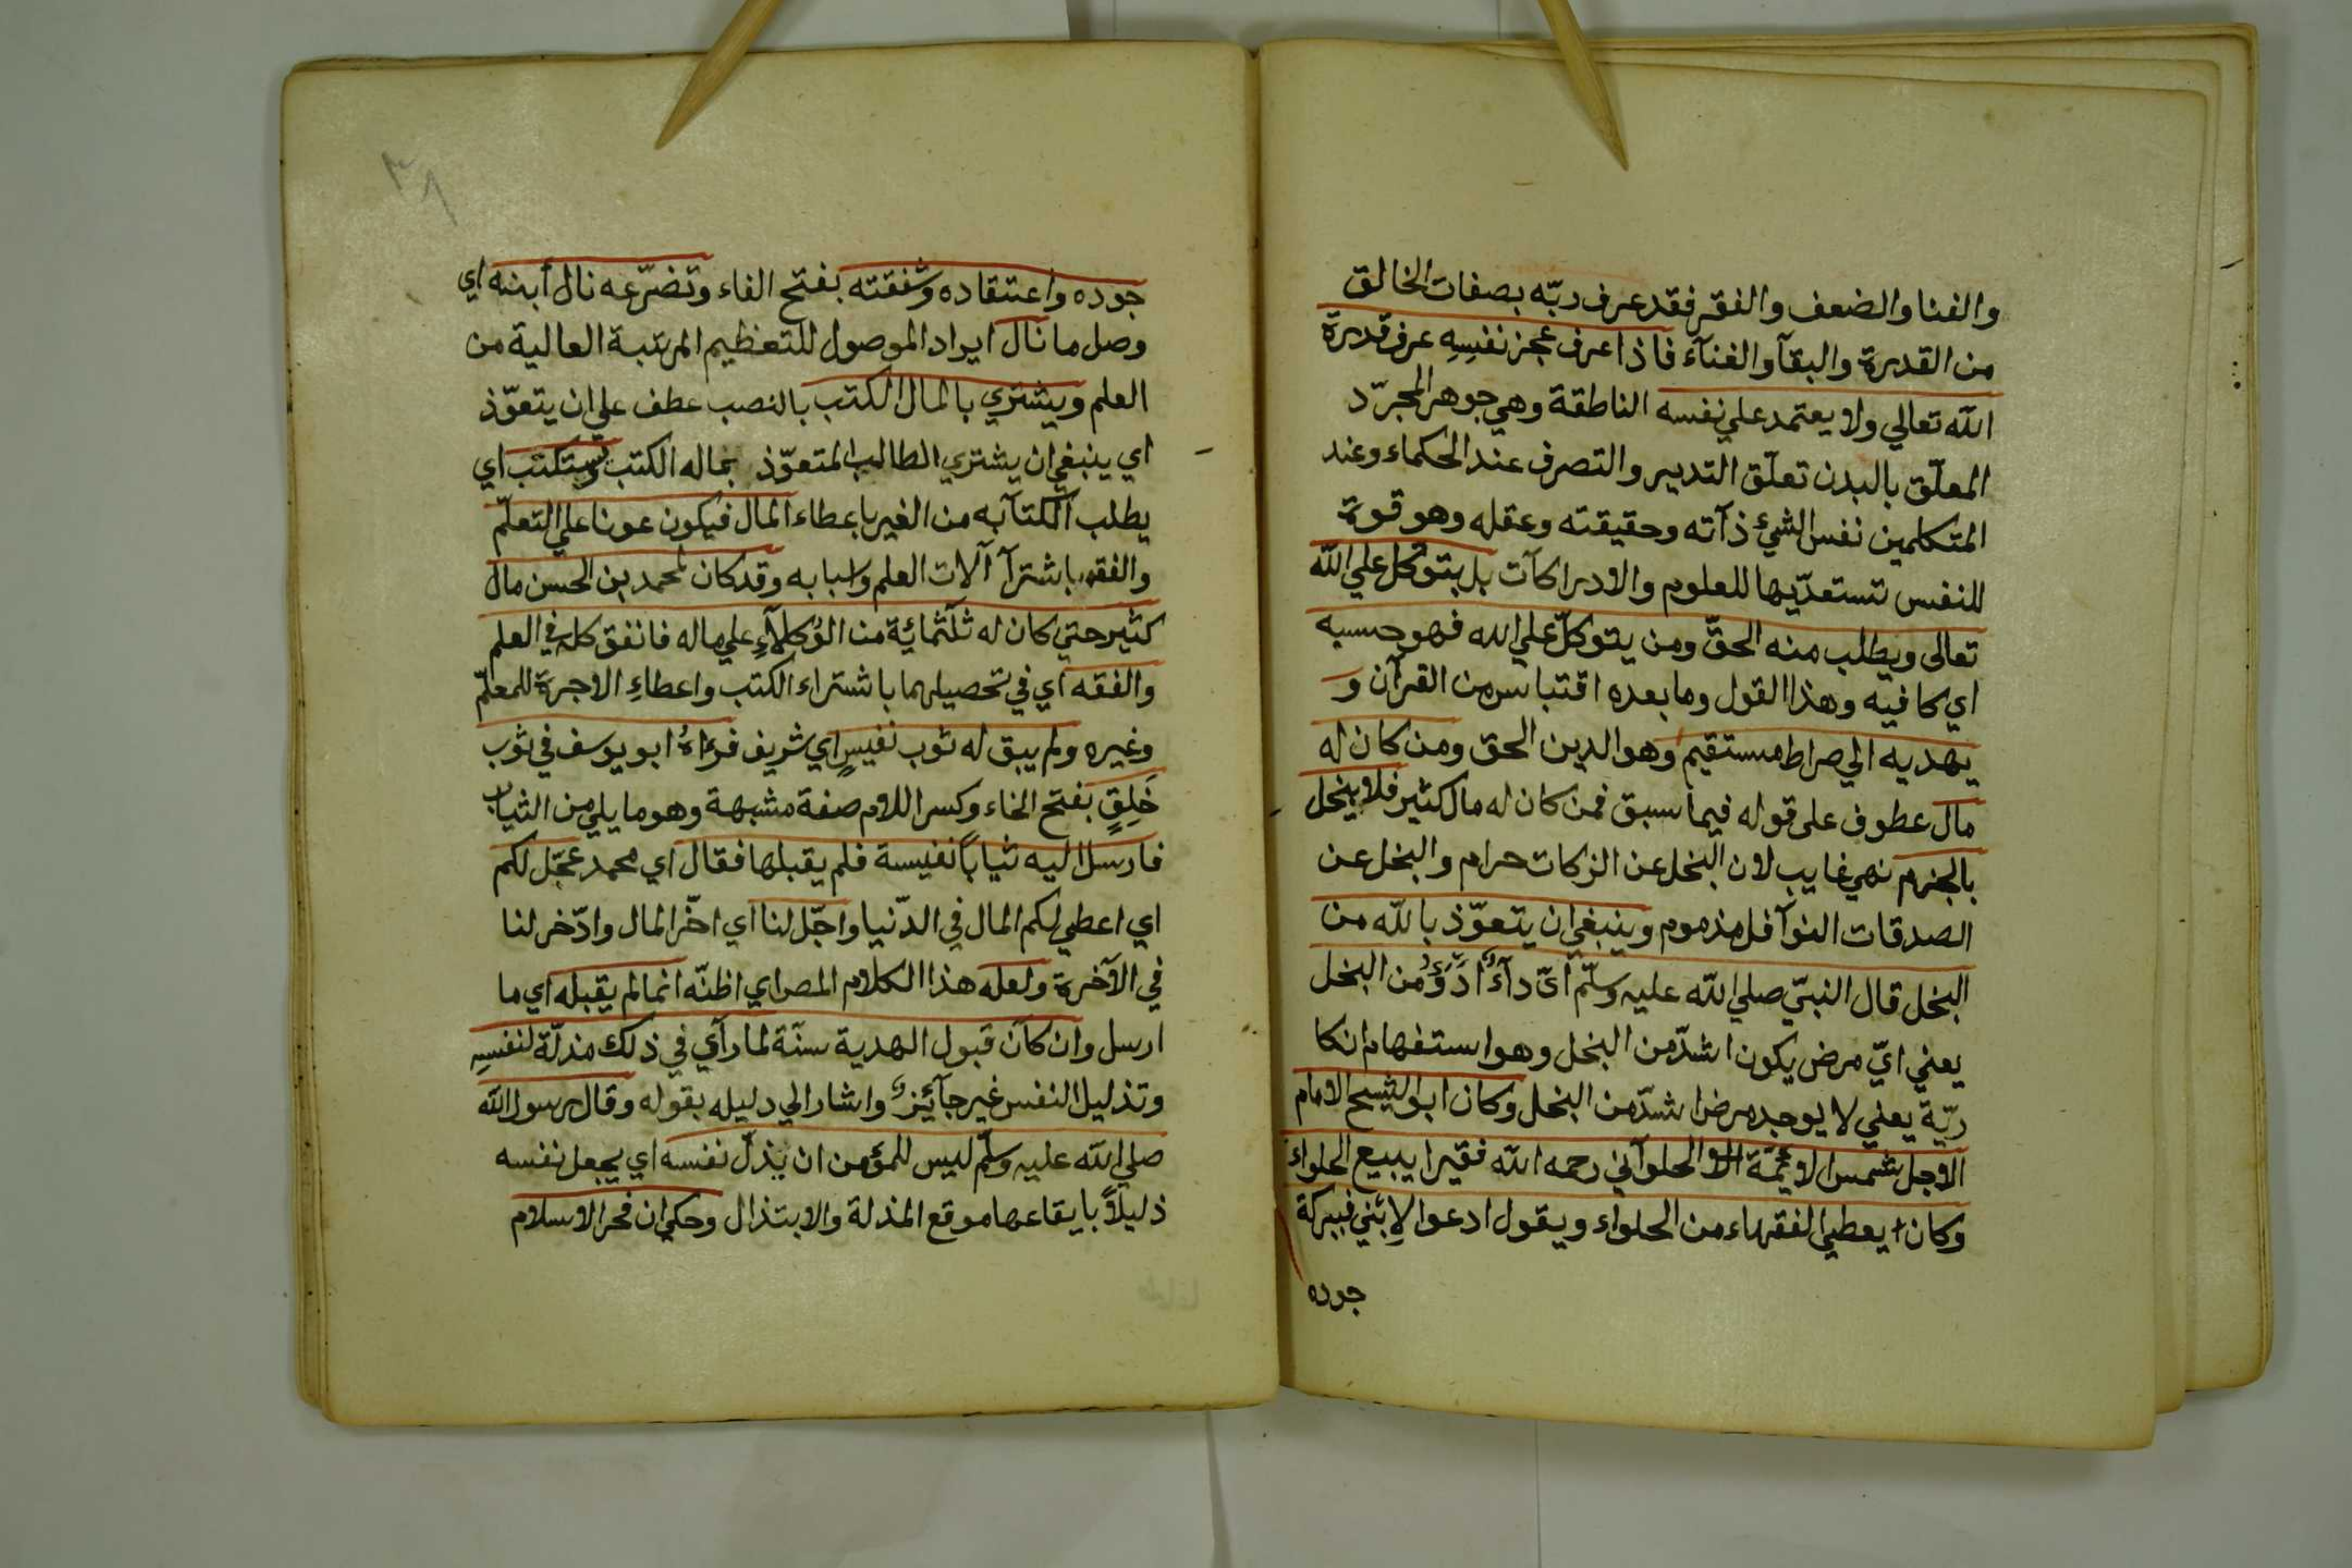 والفنا والضعف والفقر فقد عرف ربّه بصفات الخالق
من القدرة والبقآ والغنآء فاذا عرف عجز نفسِهِ عرف قدرة
الله تعالي ولا يعتمد علي نفسه الناطقة وهي جوهر المجرّد
المعلّق بالبدن تعلّق التدبير والتصرف عند الحكماء وعند
المتكلمين نفس الشيئ ذآته وحقيقته وعقله وهو قوة
للنفس تستعدّبها للعلوم والادراكآت بل يتوكّل علي الله
تعالى ويطلب منه الحقّ ومن يتوكلّ علي الله فهو حسبه
اي كافيه وهذا القول وما بعده اقتباس من القرآن و
يهديه الي صراط مستقيم وهو الدين الحق ومن كان له
مال عطوف على قوله فيما سبق فمن كان له مال كثير فلا يبخل
بالجزم نهي غايب لان البخل عن الزكات حرام والبخل عن
الصدقات النوآفل مذموم وينبغي ان يتعوّذ بالله من
البخل قال النبيّ صلي الله عليه وسلّم ايّ دآءٌ ادْوَؤُ من البخل
يعني ايّ مرض يكون اشدّ من البخل وهو استفهام انكا
ريّة يعني لا يوجد مرض اشدّ من البخل وكان ابو الشيح الامام
الاجل شمس الائمّة الحلوآني رحمه الله فقيرا يبيع الحلواء
وكان يعطي الفقهاء من الحلواء ويقول ادعوا لاِبْني فببركة
جوده
٣٨
جوده واعتقاده وشفقته بفتح الفاء وتضرّعه نال أبنه اي
وصل ما نال ايراد الموصول للتعظيم المرتبة العالية من
العلم ويشتري بالمال الكتب بالنصب عطف علي ان يتعوّذ
اي ينبغي ان يشتري الطالب المتعوّذ بماله الكتب ويستكتب اي
يطلب الكتآبه من الغير باعطاء المال فيكون عونا علي التعلّم
والفقه باشترآ آلات العلم واسبابه وقد كان لمحمد بن الحسن مال
كثير حتي كان له ثلثمائة من الوُكلآءِ علي ماله فانفق كله في العلم
والفقه اي في تحصيلهما باشتراء الكتب واعطاءِ الاجرة للمعلّم
وغيره ولم يبق له ثوب نفيسٍ اي شريف فرءاهُ ابو يوسف في ثوب
خَلِقٍ بفتح الخاء وكسر اللام صفة مشبهة وهو ما يلي من الثياب
فارسل اليه ثياباً نفيسة فلم يقبلها فقال اي محمد عجّل لكم
اي اعطي لكم المال في الدّنيا واجّل لنا اي اخّر المال وادّخر لنا
في الآخرة ولعله هذا الكلام المص اي اظنّه انما لم يقبله اي ما
ارسل وان كان قبول الهدية سنّة لما رآي في ذلك مذلّة لنفسِهِ
وتذليل النفس غير جآئزٍ واشار الي دليله بقوله وقال رسول الله
صلي الله عليه وسلّم ليس للمؤمن ان يذلّ نفسه اي يجعل نفسه
ذليلاً بايقاعها موقع المذلة والابتذال وحكي ان فخر الاسلام